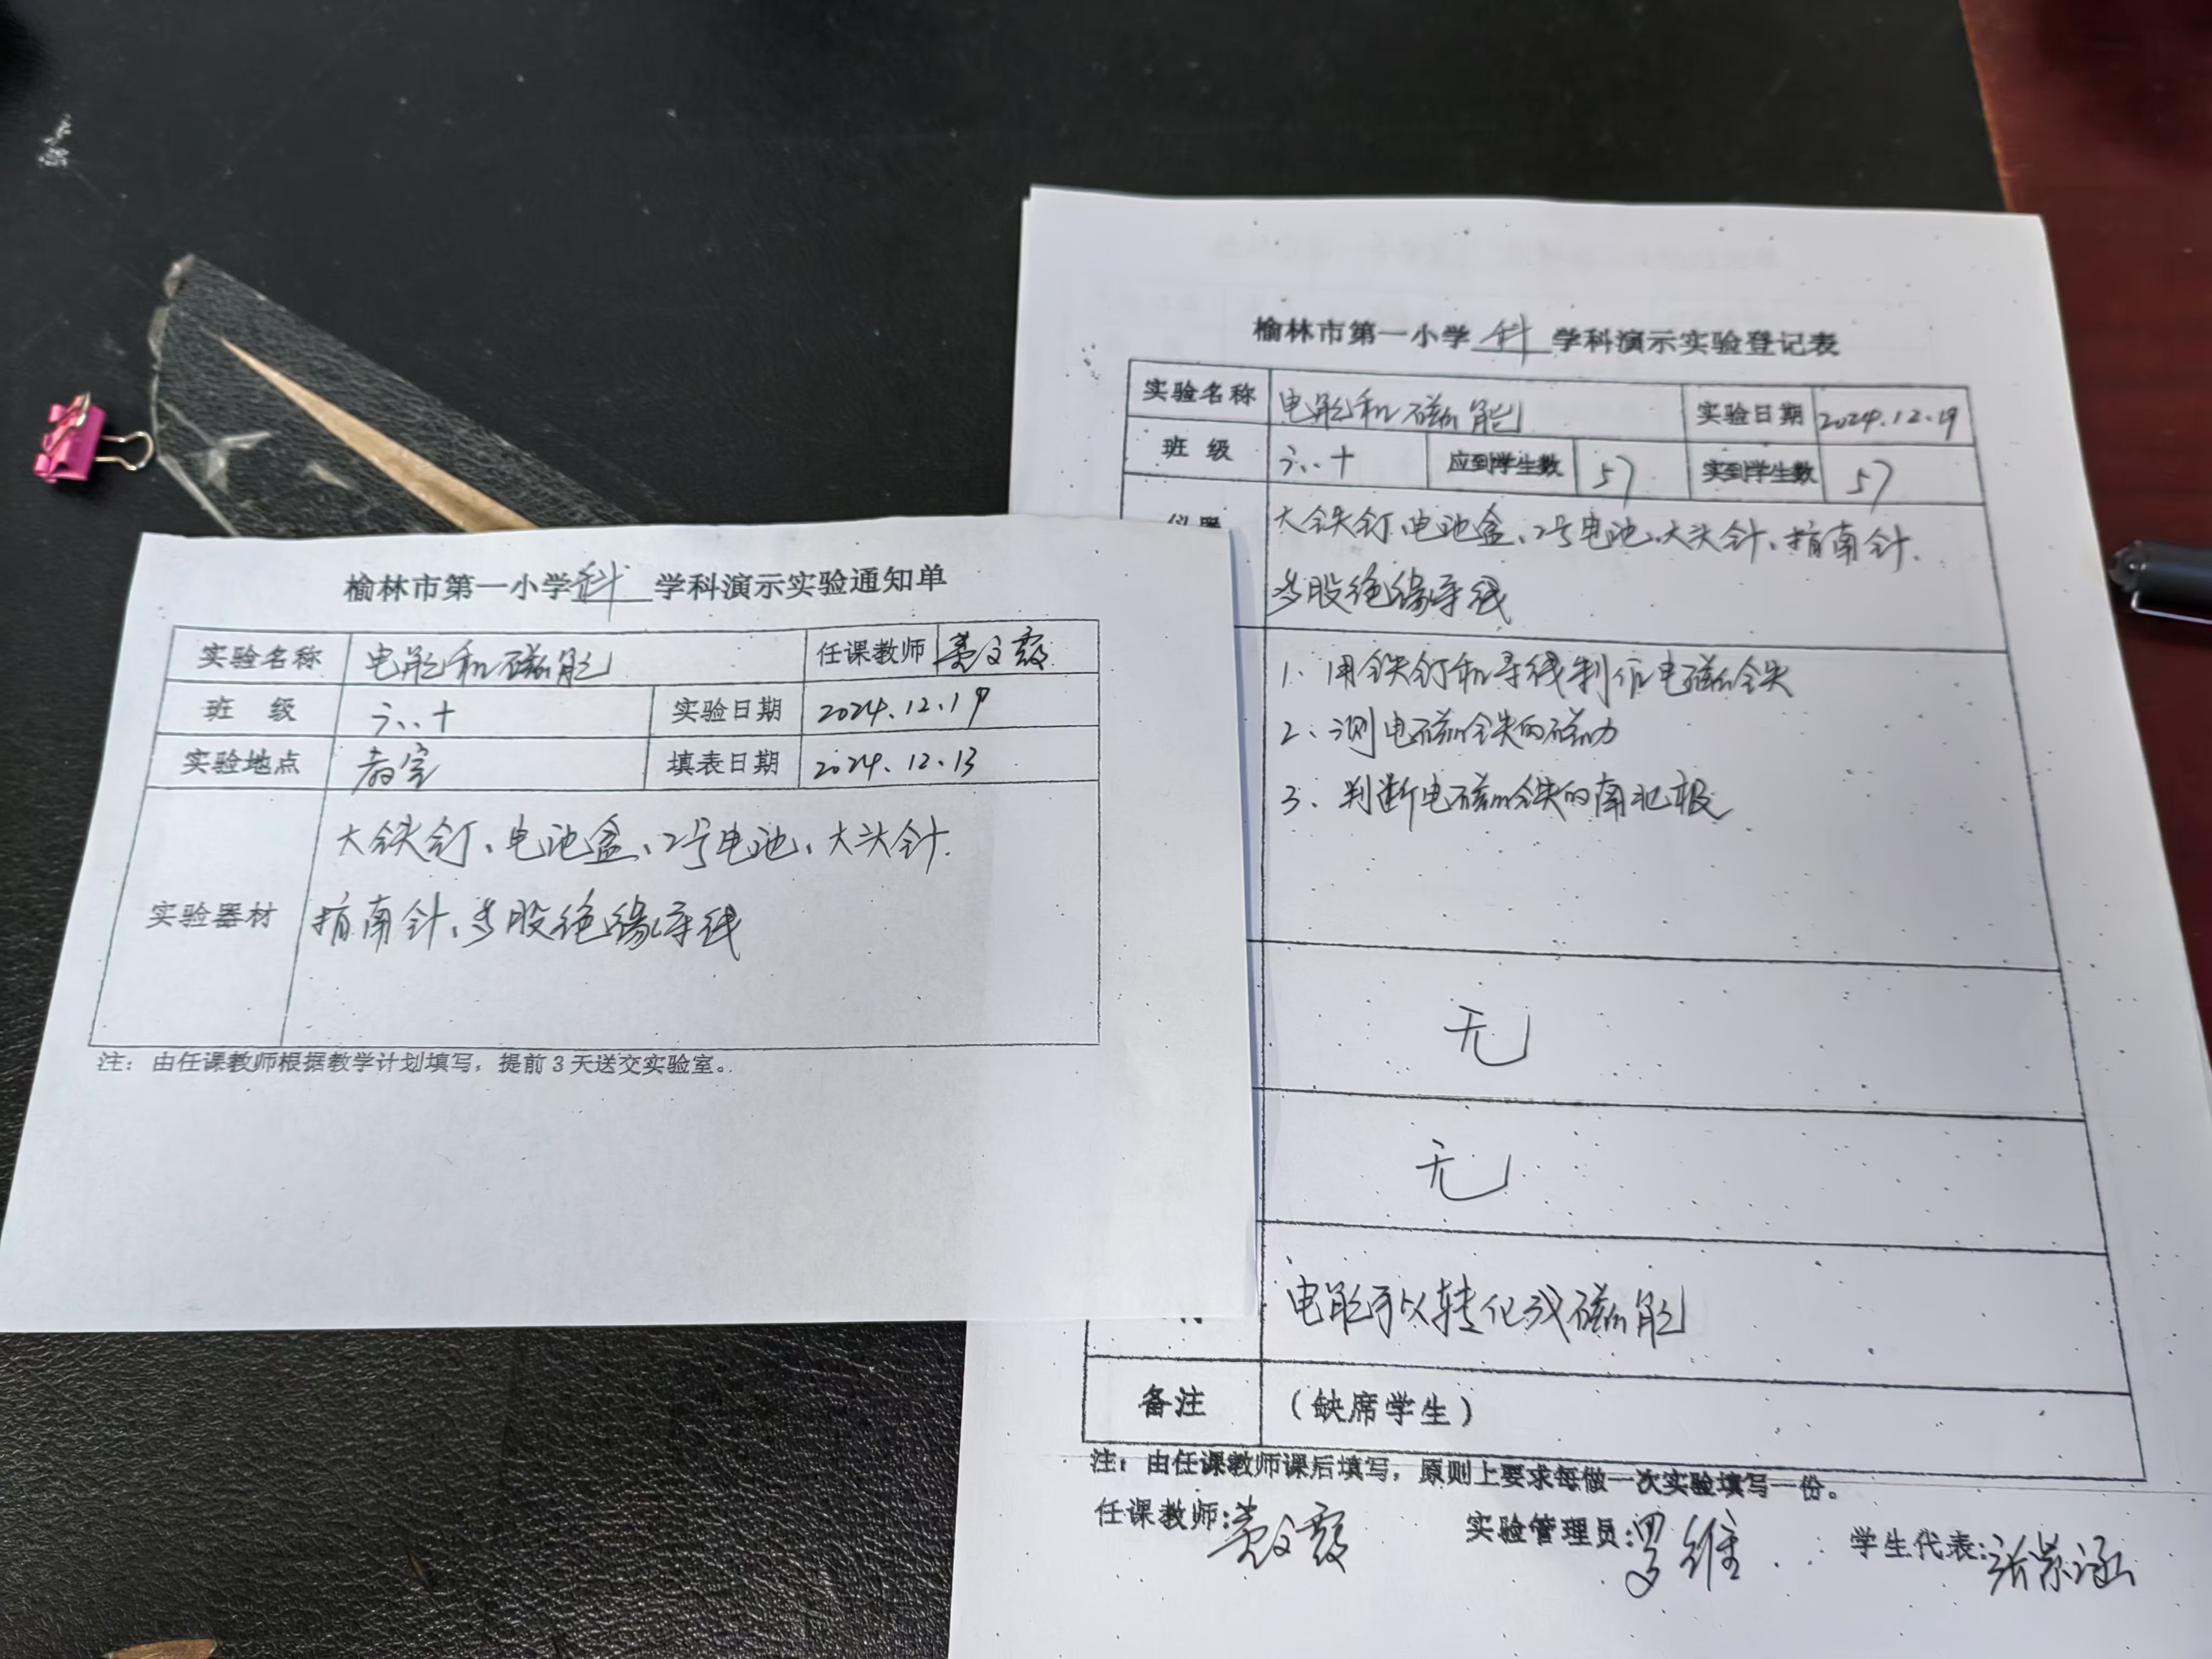 榆林市第一小学科学科演示实验通知单
实验名称 电能和磁能 任课教师 姜文霞
班 级 六.十 实验日期 2024.12.19
实验地点 教室 填表日期 2024.12.13
实验器材 大铁钉、电池盒、2号电池、大头针.
指南针、多股绝缘导线
注：由任课教师根据教学计划填写，提前3天送交实验室。
榆林市第一小学科学科演示实验登记表
实验名称 电能和磁能 实验日期 2024.12.19
班 级 六.十 应到学生数 57 实到学生数 57
仪器 大铁钉、电池盒、2号电池、大头针、指南针.
多股绝缘导线
1、用铁钉和导线制作电磁铁
2、测电磁铁的磁力
3、判断电磁铁的南北极
无
无
电能可以转化成磁能
备注 （缺席学生）
注：由任课教师课后填写，原则上要求每做一次实验填写一份。
任课教师:姜文霞 实验管理员:罗维 学生代表: